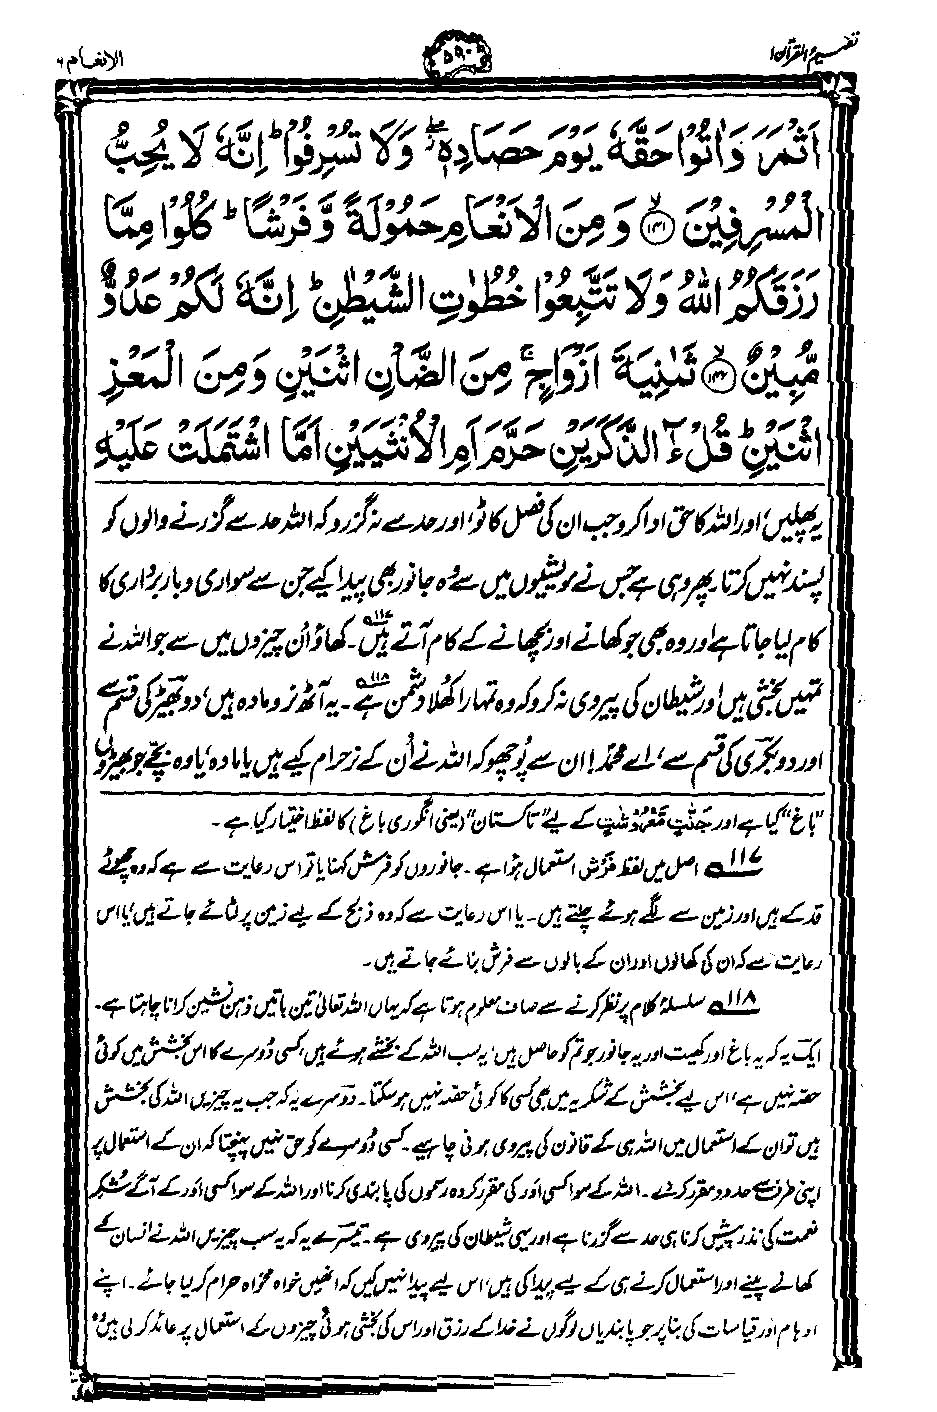 تفہیم القرآن ۱
۵۹۰
الانعام ۶
اَثْمَرَ وَاٰتُوْا حَقَّهٗ يَوْمَ حَصَادِهٖ ۖ وَلَا تُسْرِفُوْا ؕ اِنَّهٗ لَا يُحِبُّ
الْمُسْرِفِيْنَ ۙ﴿۱۴۱﴾ وَمِنَ الْاَنْعَامِ حَمُوْلَةً وَّفَرْشًا ؕ كُلُوْا مِمَّا
رَزَقَكُمُ اللّٰهُ وَلَا تَتَّبِعُوْا خُطُوٰتِ الشَّيْطٰنِ ؕ اِنَّهٗ لَكُمْ عَدُوٌّ
مُّبِيْنٌ ۙ﴿۱۴۲﴾ ثَمٰنِيَةَ اَزْوَاجٍ ۚ مِنَ الضَّاْنِ اثْنَيْنِ وَمِنَ الْمَعْزِ
اثْنَيْنِ ؕ قُلْ ءٰٓالذَّكَرَيْنِ حَرَّمَ اَمِ الْاُنْثَيَيْنِ اَمَّا اشْتَمَلَتْ عَلَيْهِ
یہ پھلیں، اور اللہ کا حق ادا کرو جب ان کی فصل کاٹو، اور حد سے نہ گزرو کہ اللہ حد سے گزرنے والوں کو
پسند نہیں کرتا۔ پھر وہی ہے جس نے مویشیوں میں سے وہ جانور بھی پیدا کیے جن سے سواری و بار برداری کا
کام لیا جاتا ہے اور وہ بھی جو کھانے اور بچھانے کے کام آتے ہیں۱۱۷۔ کھاؤ اُن چیزوں میں سے جو اللہ نے
تمہیں بخشی ہیں اور شیطان کی پیروی نہ کرو کہ وہ تمہارا کھلا دشمن ہے۱۱۸۔ یہ آٹھ نر و مادہ ہیں، دو بھیڑ کی قسم سے
اور دو بکری کی قسم سے، اے محمدؐ! ان سے پُوچھو کہ اللہ نے اُن کے نر حرام کیے ہیں یا مادہ، یا وہ بچے جو بھیڑوں
”باغ“ کیا ہے اور جَنّٰتٍ مَّعْرُوْشٰتٍ کے لیے ”تاکستان“ (یعنی انگوری باغ) کا لفظ اختیار کیا ہے۔
۱۱۷ اصل میں لفظ فَرْش استعمال ہوا ہے۔ جانوروں کو فرش کہنا یا تو اس رعایت سے ہے کہ وہ چھوٹے
قد کے ہیں اور زمین سے لگے ہوئے چلتے ہیں۔ یا اس رعایت سے کہ وہ ذبح کے لیے زمین پر لٹائے جاتے ہیں، یا اس
رعایت سے کہ ان کی کھالوں اور ان کے بالوں سے فرش بنائے جاتے ہیں۔
۱۱۸ سلسلۂ کلام پر نظر کرنے سے صاف معلوم ہوتا ہے کہ یہاں اللہ تعالیٰ تین باتیں ذہن نشین کرانا چاہتا ہے۔
ایک یہ کہ یہ باغ اور کھیت اور یہ جانور جو تم کو حاصل ہیں، یہ سب اللہ کے بخشے ہوئے ہیں، کسی دُوسرے کا اس بخشش میں کوئی
حصّہ نہیں ہے، اس لیے بخشش کے شکریہ میں بھی کسی کا کوئی حصّہ نہیں ہو سکتا۔ دوسرے یہ کہ جب یہ چیزیں اللہ کی بخشش
ہیں تو ان کے استعمال میں اللہ ہی کے قانون کی پیروی ہونی چاہیے۔ کسی دُوسرے کو حق نہیں پہنچتا کہ ان کے استعمال پر
اپنی طرف سے حدود مقرر کر دے۔ اللہ کے سوا کسی اَور کی مقرر کردہ رسموں کی پابندی کرنا اور اللہ کے سوا کسی اَور کے آگے شُکرِ
نعمت کی نذر پیش کرنا ہی حد سے گزرنا ہے اور یہی شیطان کی پیروی ہے۔ تیسرے یہ کہ یہ سب چیزیں اللہ نے انسان کے
کھانے پینے اور استعمال کرنے ہی کے لیے پیدا کی ہیں، اس لیے پیدا نہیں کیں کہ انھیں خواہ مخواہ حرام کر لیا جائے۔ اپنے
اوہام اور قیاسات کی بنا پر جو پابندیاں لوگوں نے خدا کے رزق اور اس کی بخشی ہوئی چیزوں کے استعمال پر عائد کر لی ہیں وہ